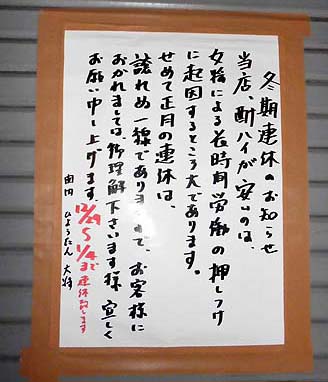 冬期連休のお知らせ
当店「酎ハイが安い」のは
女将による長時間労働の押しつけ
に起因するところ大であります。
せめて正月の連休は、
譲れぬ一線でありますので、お客様に
おかれましては、御理解下さいます様 宜しく
お願い申し上げます。
12/29〜1/4まで連休致します
ひょうたん 大将